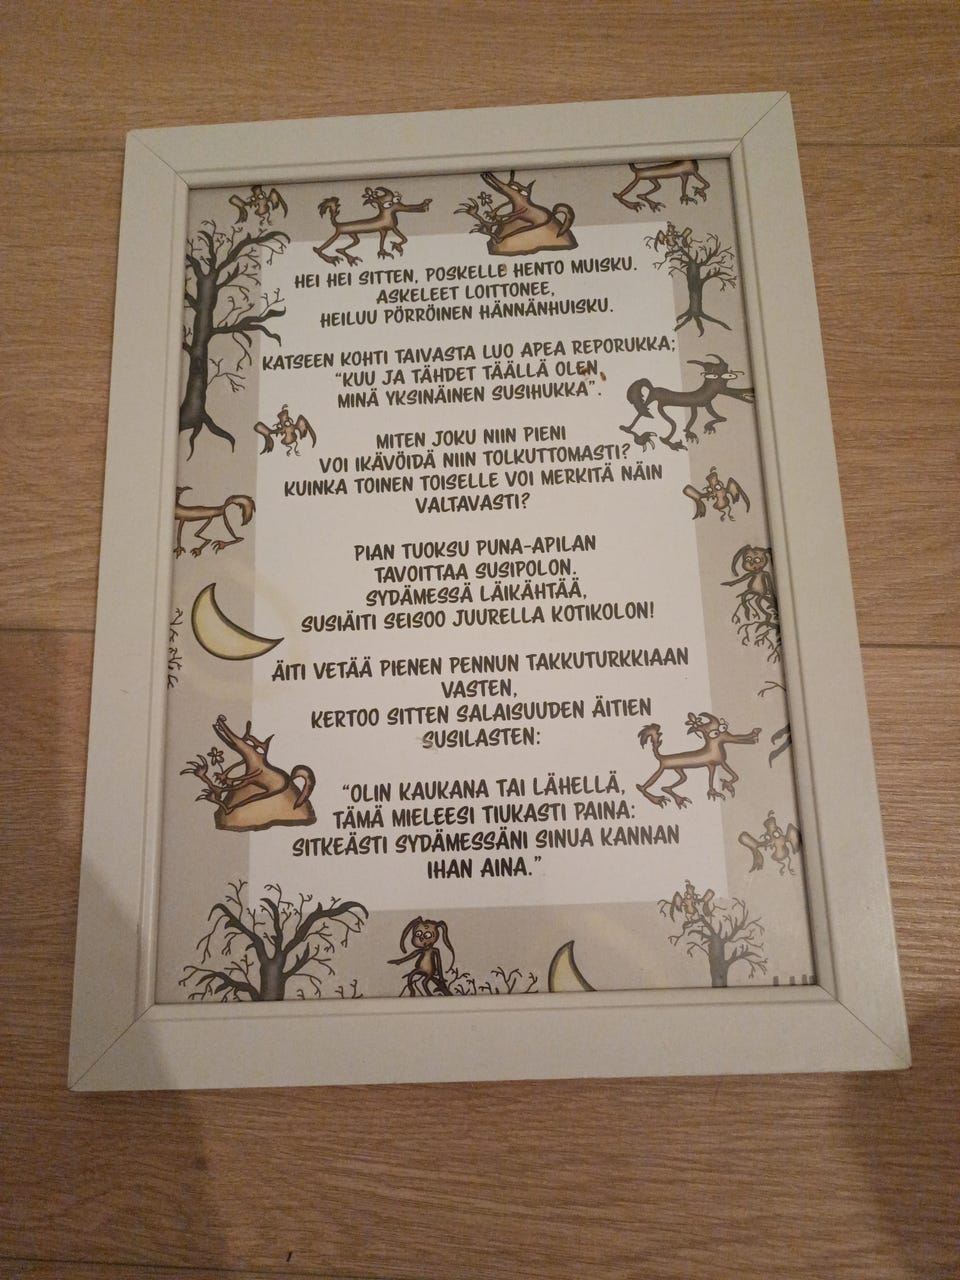 HEI HEI SITTEN, POSKELLE HENTO MUISKU.
ASKELEET LOITTONEE,
HEILUU PÖRRÖINEN HÄNNÄNHUISKU.
KATSEEN KOHTI TAIVASTA LUO APEA REPORUKKA;
"KUU JA TÄHDET TÄÄLLÄ OLEN,
MINÄ YKSINÄINEN SUSIHUKKA".
MITEN JOKU NIIN PIENI
VOI IKÄVÖIDÄ NIIN TOLKUTTOMASTI?
KUINKA TOINEN TOISELLE VOI MERKITÄ NÄIN
VALTAVASTI?
PIAN TUOKSU PUNA-APILAN
TAVOITTAA SUSIPOLON.
SYDÄMESSÄ LÄIKÄHTÄÄ,
SUSIÄITI SEISOO JUURELLA KOTIKOLON!
ÄITI VETÄÄ PIENEN PENNUN TAKKUTURKKIAAN
VASTEN,
KERTOO SITTEN SALAISUUDEN ÄITIEN
SUSILASTEN:
"OLIN KAUKANA TAI LÄHELLÄ,
TÄMÄ MIELEESI TIUKASTI PAINA:
SITKEÄSTI SYDÄMESSÄNI SINUA KANNAN
IHAN AINA."